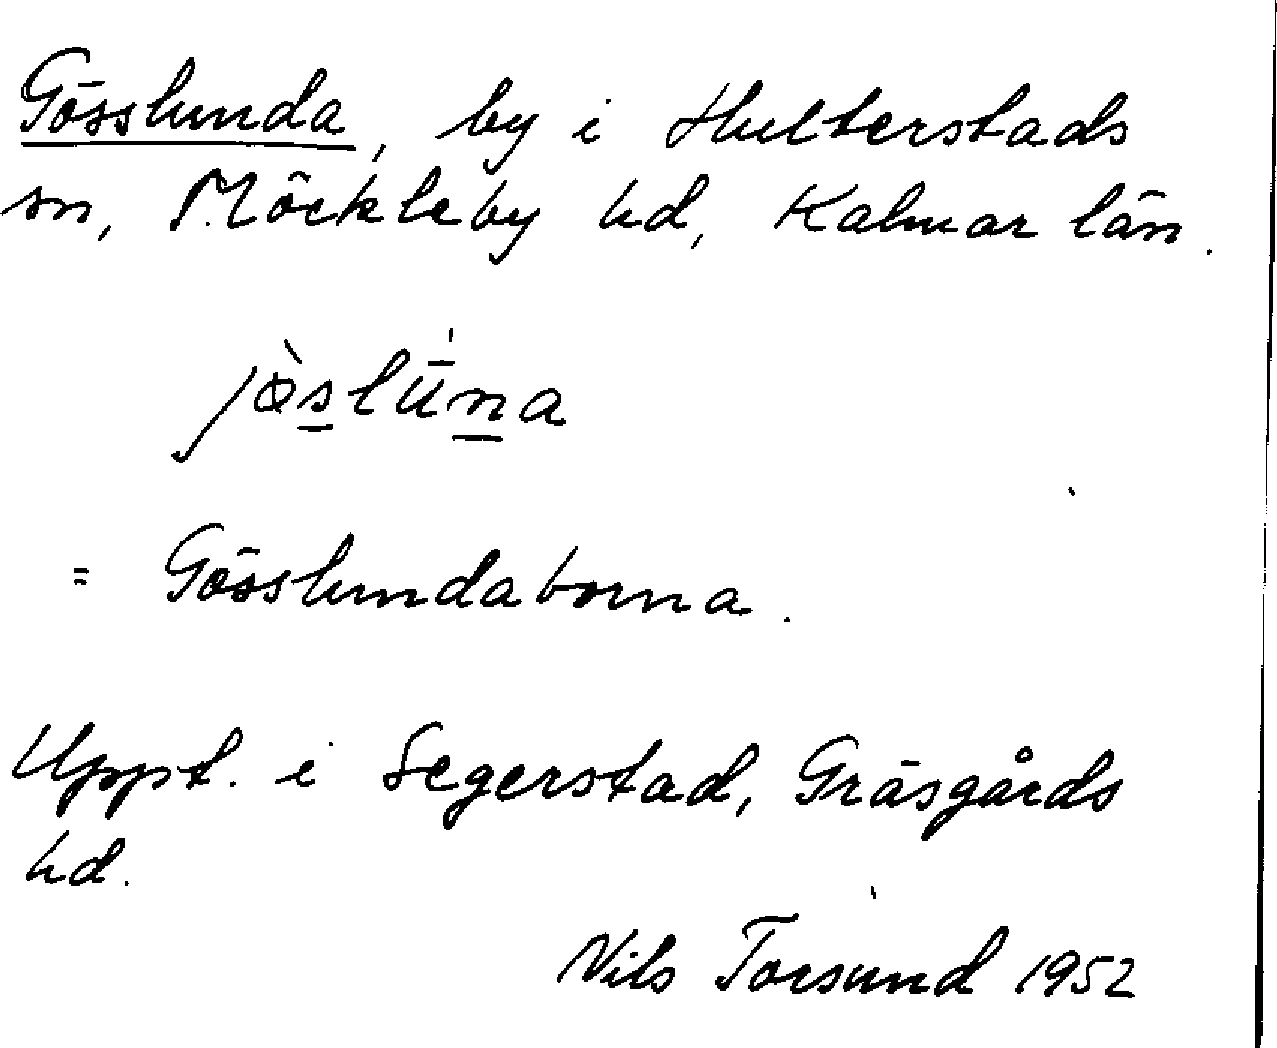 Gösslunda, by i Hulterstads
sn, Möckleby hd, Kalmar län.
jösluna
= Gösslundaborna.
Uppt. i Segerstad, Gräsgårds
hd.
Nils Torsund 1952